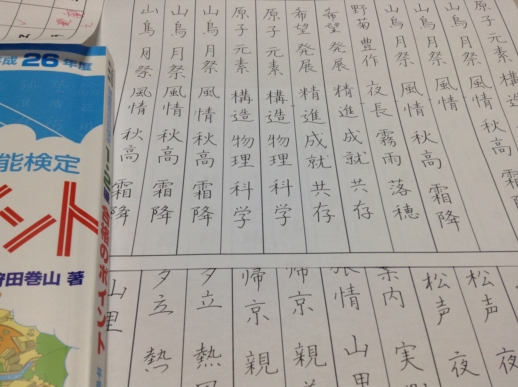 原子 元素 構造
山鳥月祭 風情
山鳥月祭 風情 秋高 霜降
野菊 豊作 夜長 霧雨 落穂
希望 発展 精進 成就 共存
希望 発展 精進 成就 共存
原子 元素 構造 物理 科学
原子 元素 構造 物理 科学
山鳥月祭 風情 秋高 霜降
山鳥月祭 風情 秋高 霜降
山鳥月祭 風情 秋高 霜降
松声 夜
松声 夜
案内 実
旅情 山
帰京 親
帰京 親
夕立 熱
夕立 熱
山里
成26年度
能検定
ント
狩田巻山 著
合格のポイント